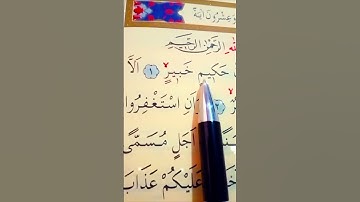 وعشرون اية
الرَّحْمٰنِ الرَّحِيمِ
حَكِيمٍ خَبِيرٍ ﴿١﴾ اَلَّا
وَاَنِ اسْتَغْفِرُوا
اَجَلٍ مُسَمًّى
عَلَيْكُمْ عَذَابَ